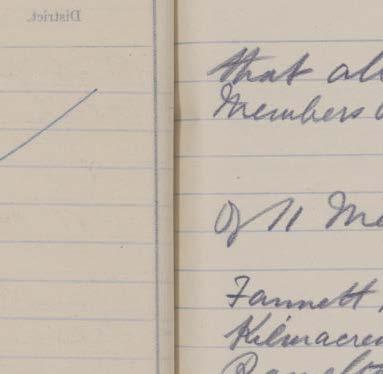 District.
that all
Members
of 11 Me
Fannett,
Kilmacren